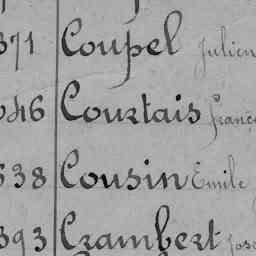 371 Coupel Julien
046 Courtais Franç
538 Cousin Emile
393 Crambert Jose